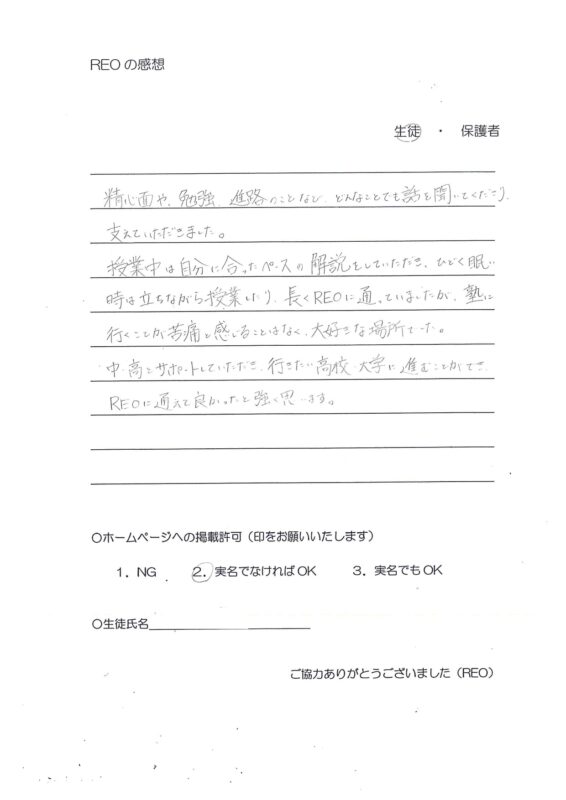 REOの感想
生徒 ・ 保護者
精神面や、勉強、進路のことなど、どんなことでも話を聞いてくださり、
支えていただきました。
授業中は自分に合ったペースの解説をしていただき、ひどく眠い
時は立ちながら授業したり、長くREOに通っていましたが、塾に
行くことが苦痛と感じることはなく、大好きな場所でした。
中・高とサポートしていただき、行きたい高校・大学に進むことができ、
REOに通えて良かったと強く思います。
〇ホームページへの掲載許可（印をお願いいたします）
1．NG 2．実名でなければOK 3．実名でもOK
〇生徒氏名
ご協力ありがとうございました（REO）